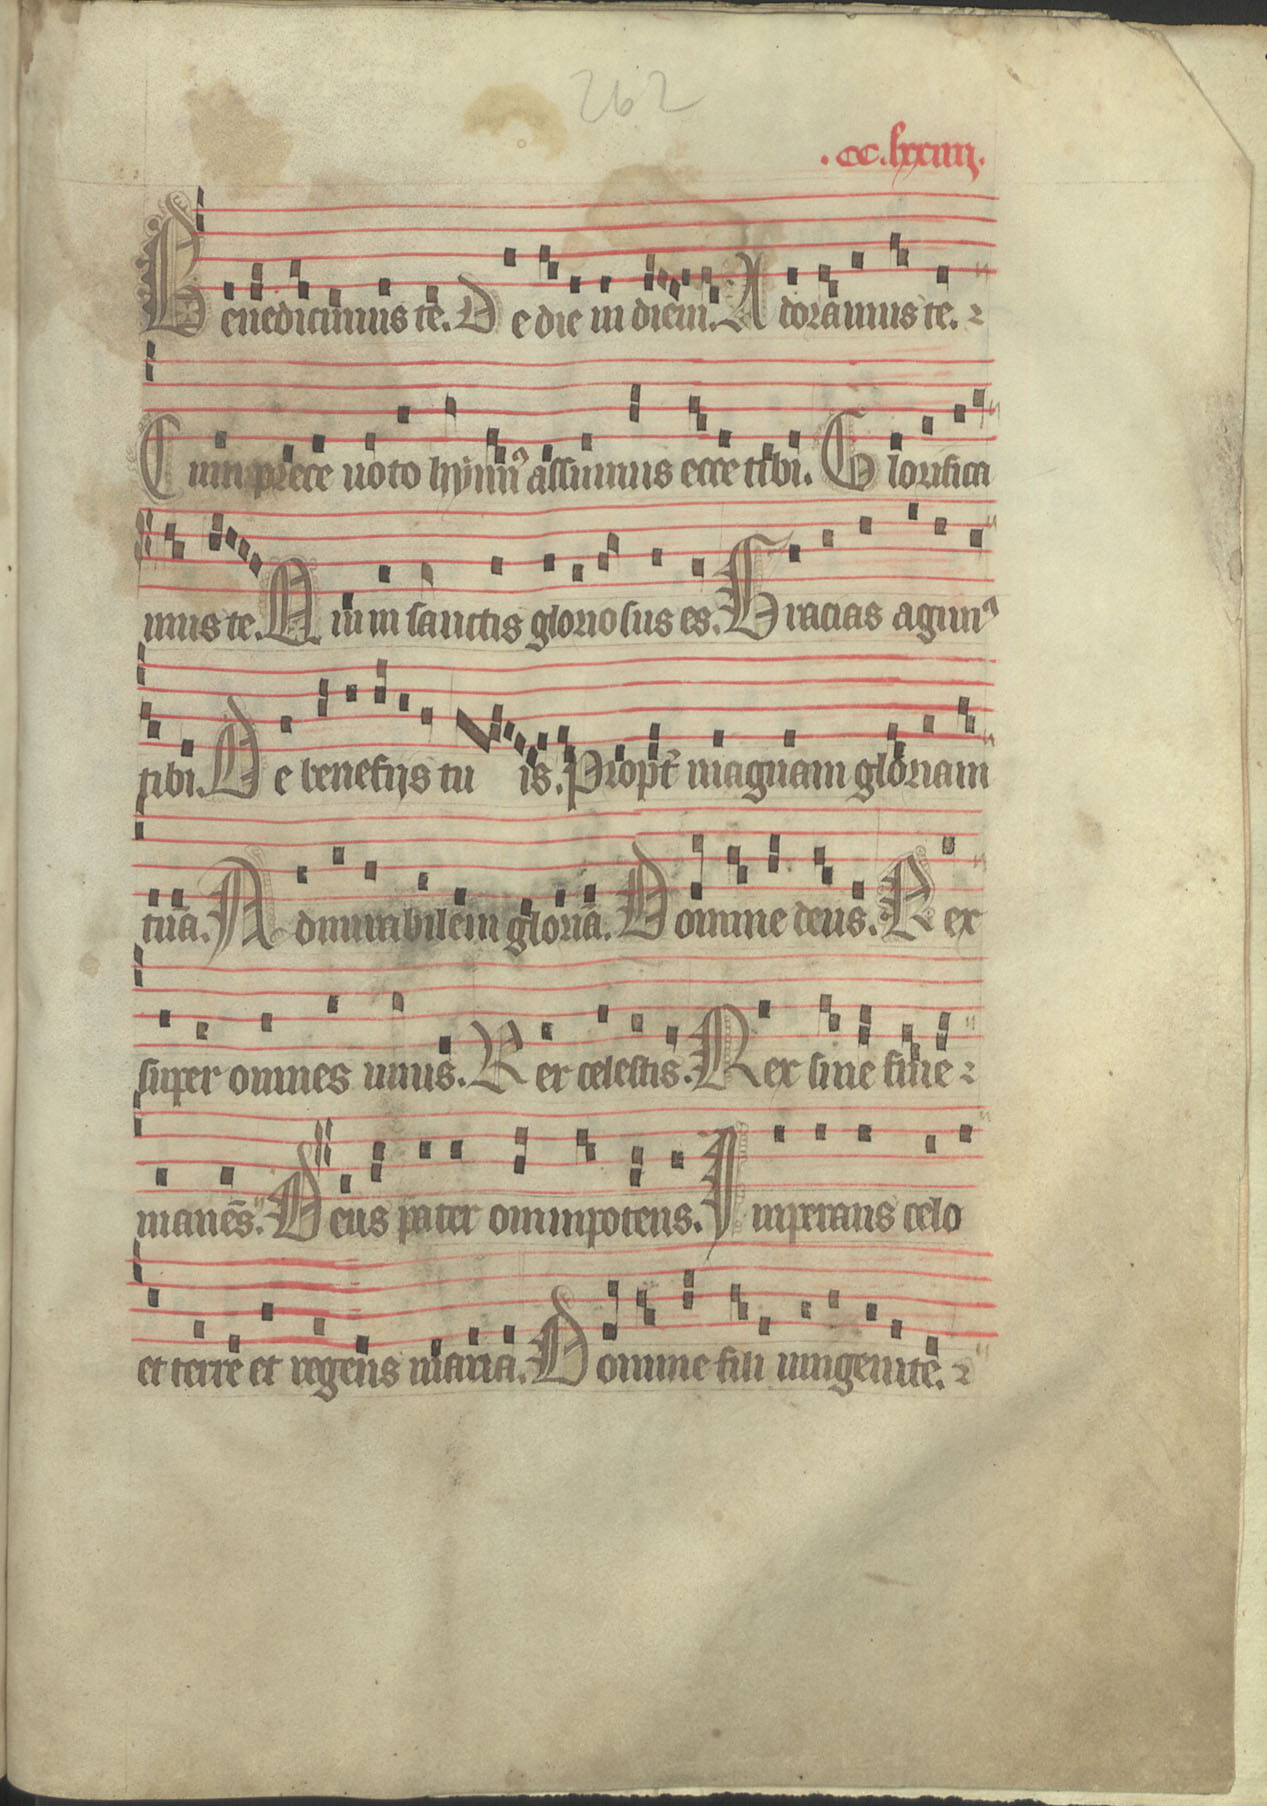 262
.cc.lxxiiii.
Benedicimus te. De die in diem. Adoramus te.
Cum prece uoto hymnꝰ assumus ecce tibi. Glorifica
mus te. Qui in sanctis gloriosus es. Gracias agimꝰ
tibi. De beneficijs tu is. Propt̄ magnam gloriam
tuā. Admirabilem gloriā. Domine deus. Rex
super omnes unus. Rex celestis. Rex sine fine
manēs. Deus pater omnipotens. Imperans celo
et terre et regens maria. Domine fili unigenite.